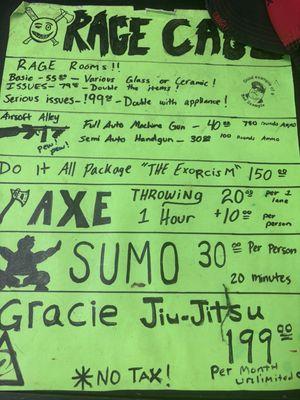 RAGE CAGE
RAGE ROOMS!!
Basic - 55.00 - Various Glass or Ceramic!
ISSUES - 79.00 - Double the items!
Serious issues - 199.00 - Double with appliance!
Good example of a
Airsoft Alley
Full Auto Machine Gun - 40.00
rounds Ammo
pew!
pew!
Semi Auto Handgun - 30.00 100 Rounds Ammo
Do It All Package "THE ExorcisM" 150.00
AXE THROWING 20.00 per 1 lane
1 Hour +10.00 per person
SUMO 30.00 Per Person
20 minutes
Gracie Jiu-Jitsu
199.00
*NO TAX!
Per Month
unlimited